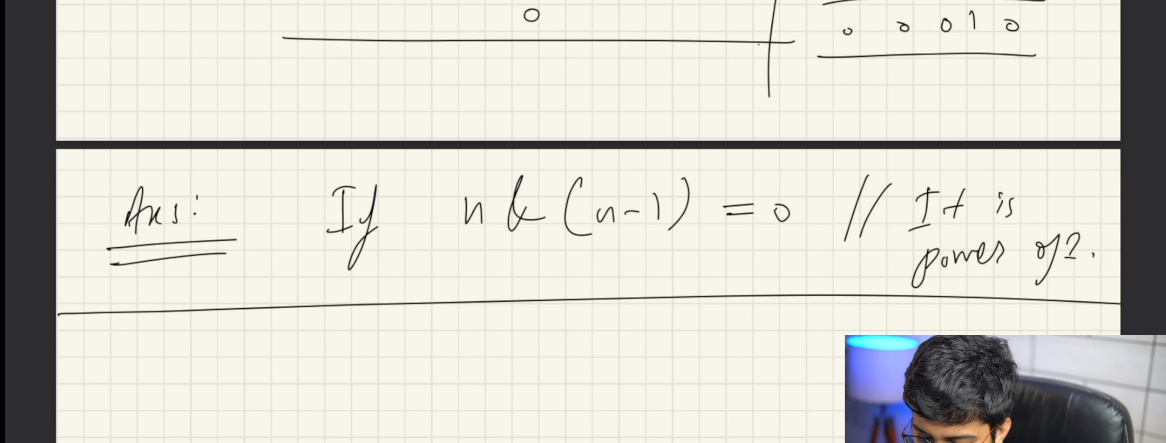 0
0 0 0 1 0
Ans: If n & (n-1) = 0 // It is
power of 2.